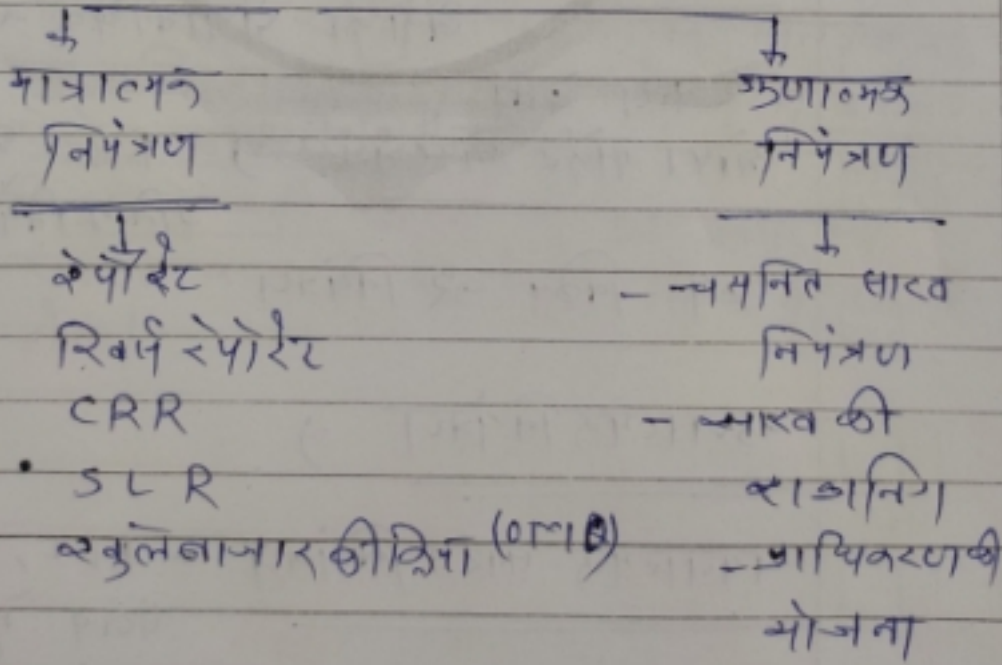 मात्रात्मक
नियंत्रण
रेपो रेट
रिवर्स रेपो रेट
CRR
SLR
खुले बाजार की क्रिया (OMO)
गुणात्मक
नियंत्रण
- चयनित साख
नियंत्रण
- साख की
राशनिंग
- प्राधिकरण की
योजना